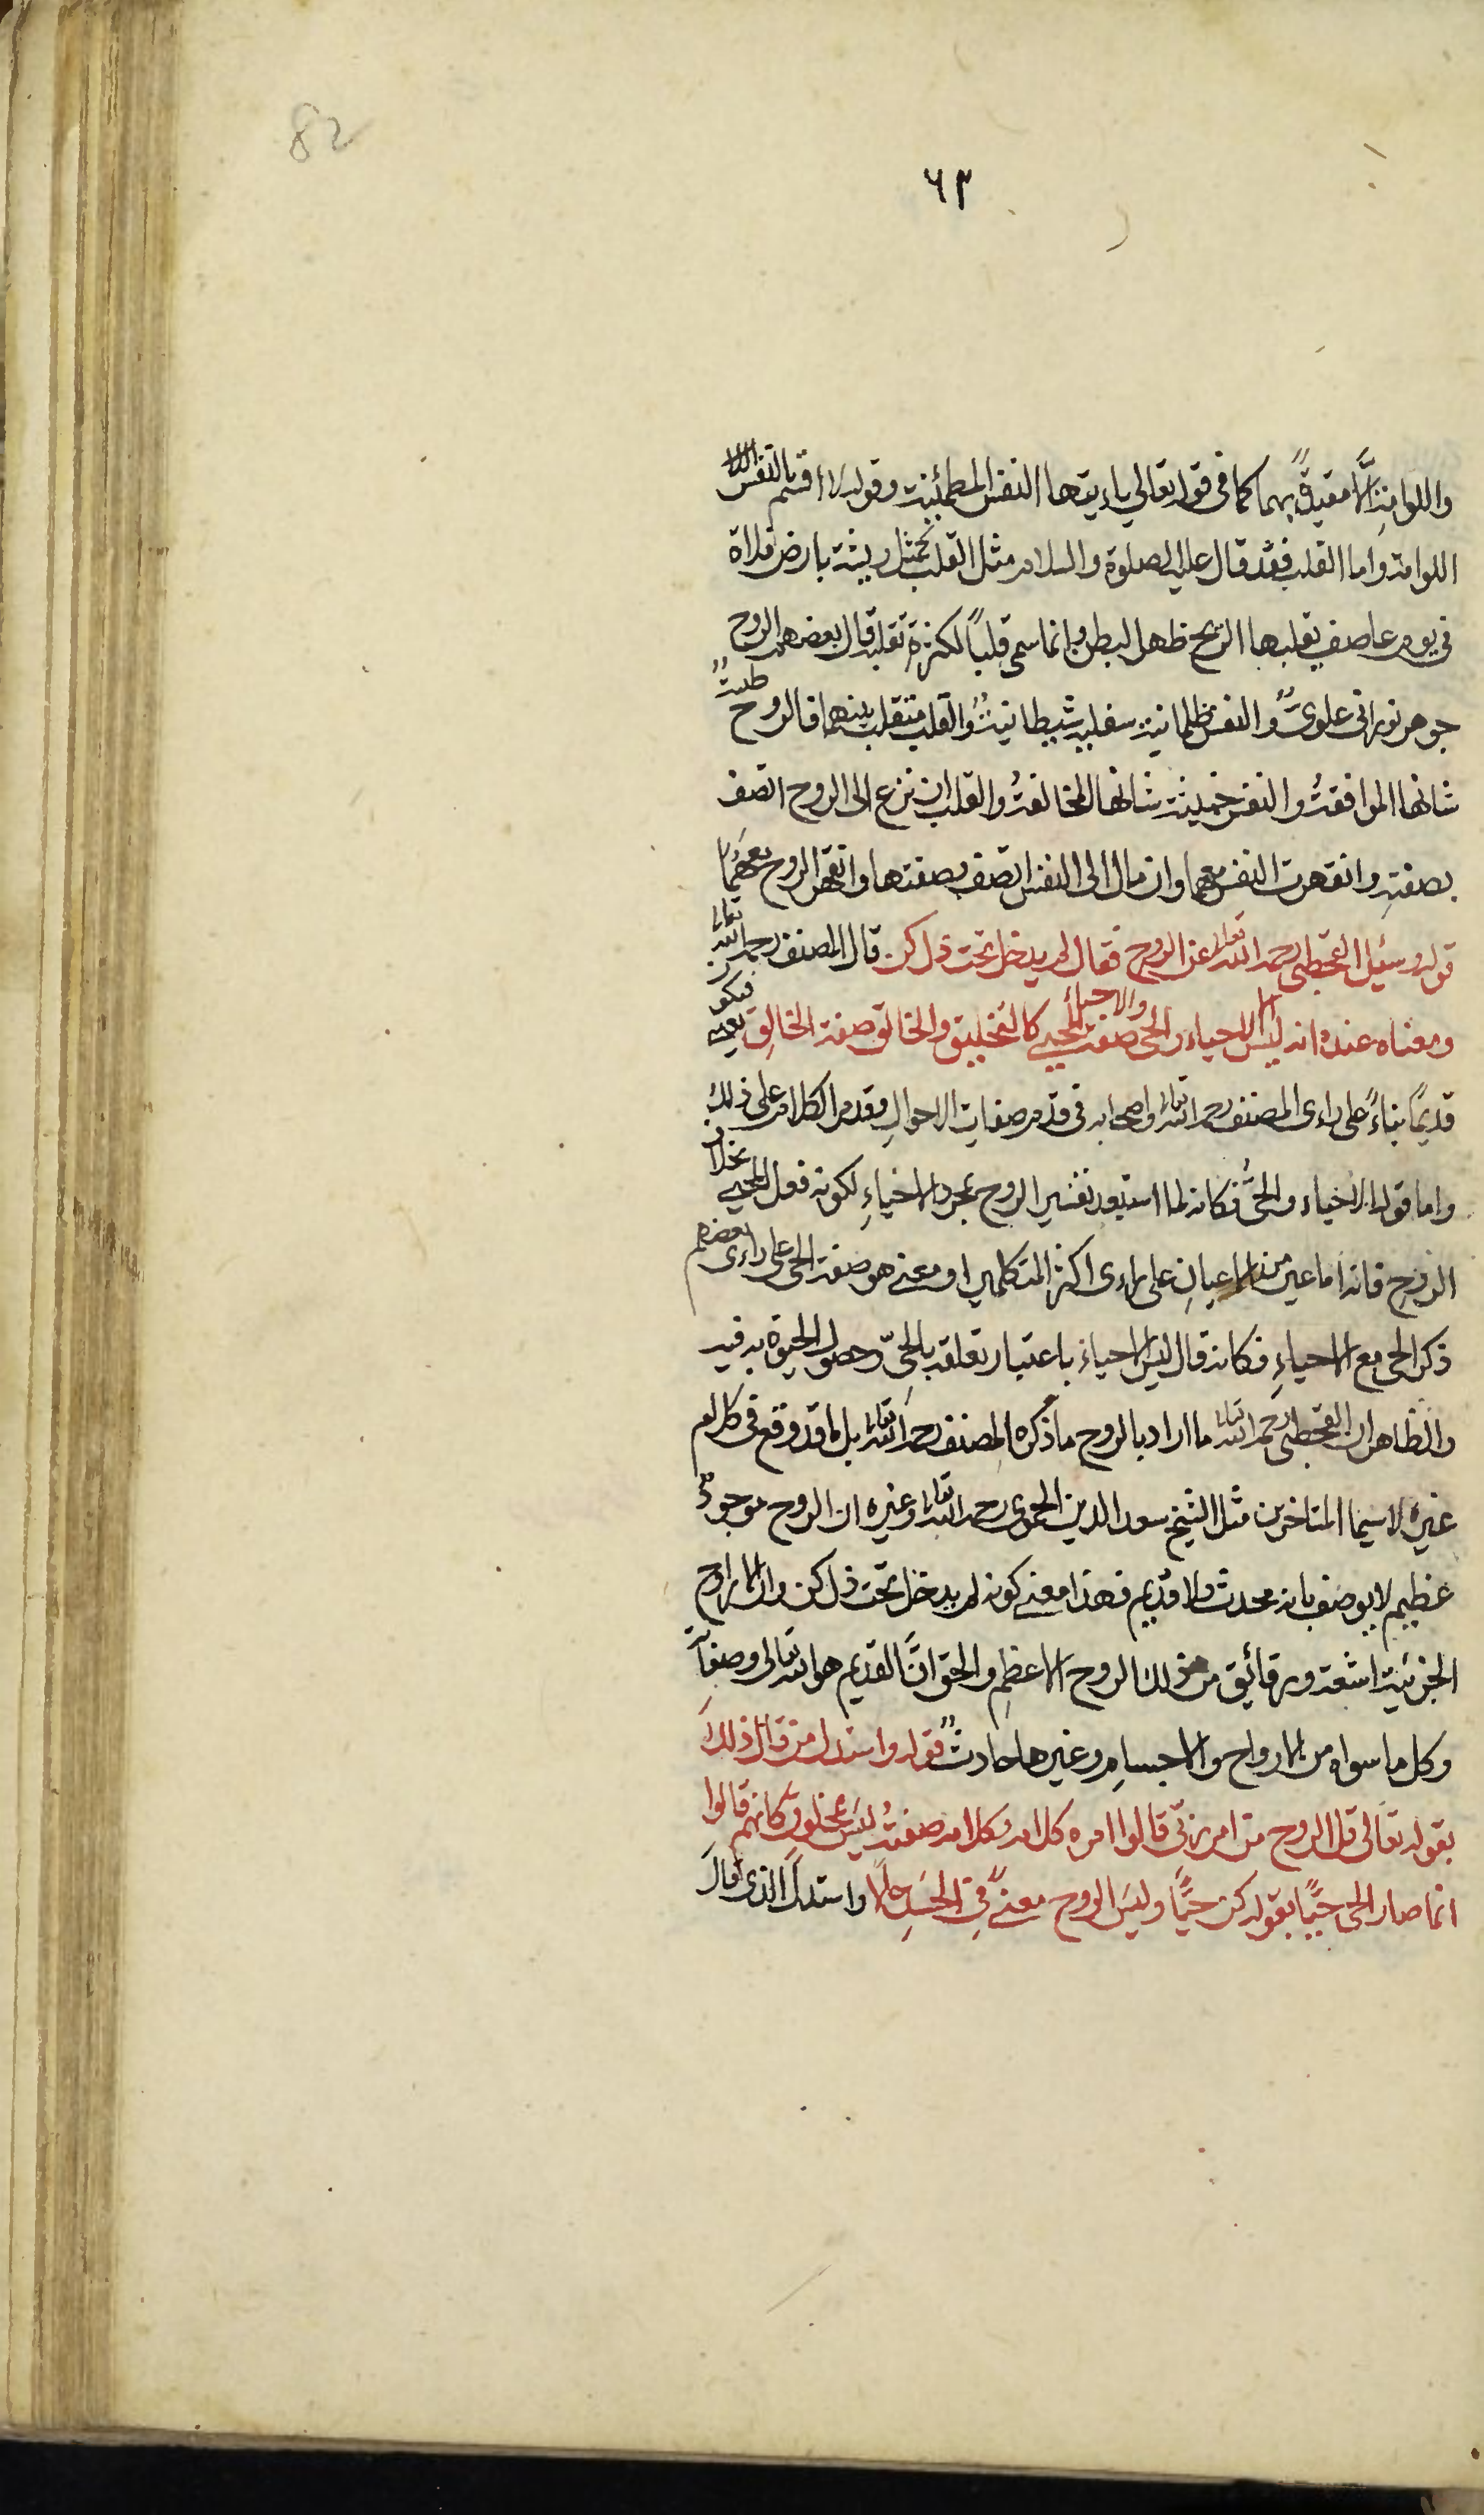 82
٦٣
واللوامة الا مقيدة بهما كما فى قوله تعالي ياءيتها النفس المطمئنة وقوله لا اقسم بالنفس
اللوامة واما القلب فقد قال عليه الصلوة والسلام مثل القلب كمثل ريشة بارض فلاة
فى يوم عاصف يقلبها الريح ظهر البطن وانما سمى قلبًا لكثرة تقلبه قال بعضهم الروح
جوهر نورانى علوىٌ والنفس ظلمانية سفلية شيطانيةٌ والقلب متقلب بينهما فالروح طيبةٌ
شانها الموافقةُ والنفس خبيثة شانها المخالفةُ والقلب ان نزع الى الروح اتصف
بصفتهِ وانقهرت النفس معهما وان مال الى النفس اتصف بصفتها وانقهر الروح معهُمَا
قوله وسئيل القحطبى رحمه الله تعالى عن الروح فقال لم يدخل تحت ذل كن قال المصنف رحمه الله تعالى
ومعناه عنده انه ليس الا الاحياء والحى والاحياءُ صفة المحيى كالتخليق والخالق صفة الخالِق يعنى فيكون
قديمًا بناءً على راءى المصنف رحمه الله تعالى واصحابه فى قدم صفات الاحوالِ وتقدم الكلام على ذلك
واما قوله الاحياء والحىُّ فكانه لما استبعد تفسير الروح بمجرد الاحياءِ لكونه فعل المحيى بخلاف
الروحِ فانه اما عين من الاعيانِ على راءى اكثر المتكلمين او معنى هو صفة الحى على راءى بعضهم
ذكر الحى مع الاحياءِ فكانه قال ليس الاحياءَ باعتبار تعلقه بالحىّ وحصول الحيوة به فيه
والظاهر ان القحطبى رحمه الله تعالى ما اراد بالروح ما ذكره المصنف رحمه الله تعالى بل ما قد وقع فى كلام
غيره لاسيما المتاخرين مثل الشيخ سعد الدين الحموى رحمه الله تعالى وغيره ان الروح موجودٌ
عظيم لا يوصف بانه محدث ولا قديم فهذا معنى كونه لم يدخل تحت ذل كن وان الارواح
الجزئية اشعة ورقائيق من ذلك الروح الاعظمِ والحق انَّ القديم هو الله تعالى وصفاته
وكل ما سواه من الارواح والاجسامِ وغيرها حادثٌ قوله واستدل من قال ذلك
بقوله تعالى قل الروح من امر ربّى قالوا امره كلامه وكلامه صفتهُ ليس بمخلوقٍ كانهم قالوا
انما صار الحى حيًّا بقوله كن حيًّا وليسَ الروح معنىً فى الجسَدِ واستدلَّ الذى قالَ